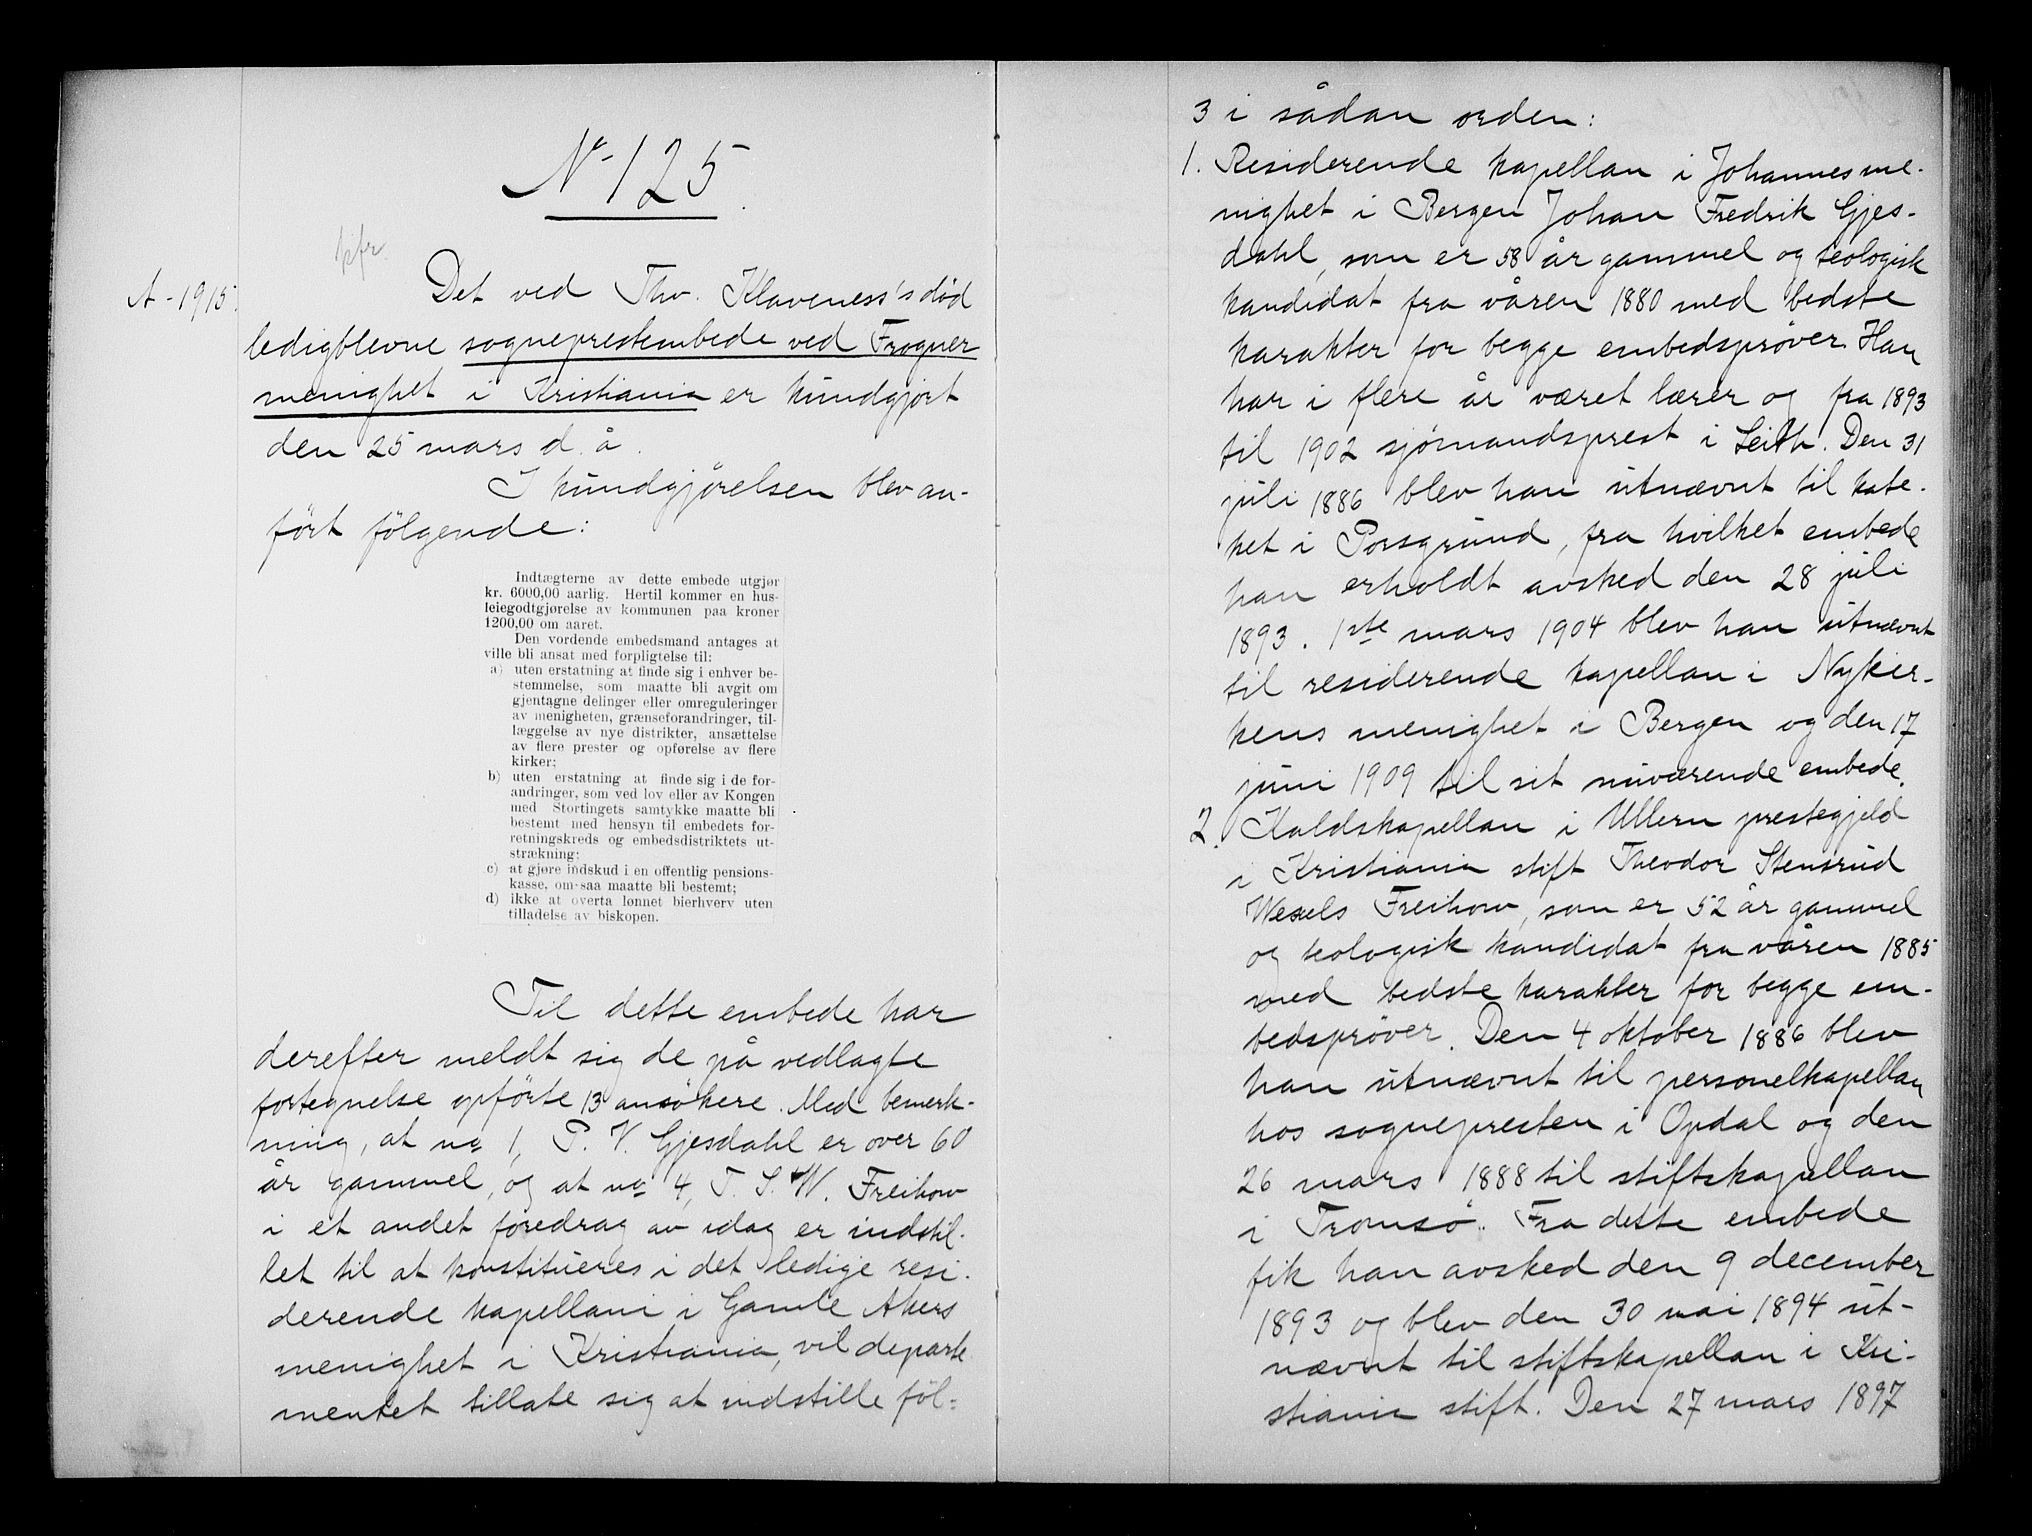 No 125.
kfr.
A-1915.
Det ved Thv. Klaveness's død
ledigblevne sogneprestembede ved Frogner
menighet i Kristiania er kundgjort
den 25 mars d. å.
I kundgjørelsen blev an-
ført følgende:
Indtægterne av dette embede utgjør
kr. 6000,00 aarlig. Hertil kommer en hus-
leiegodtgjørelse av kommunen paa kroner
1200,00 om aaret.
Den vordende embedsmand antages at
ville bli ansat med forpligtelse til:
a) uten erstatning at finde sig i enhver be-
stemmelse, som maatte bli avgit om
gjentagne delinger eller omreguleringer
av menigheten, grænseforandringer, til-
læggelse av nye distrikter, ansættelse
av flere prester og opførelse av flere
kirker;
b) uten erstatning at finde sig i de for-
andringer, som ved lov eller av Kongen
med Stortingets samtykke maatte bli
bestemt med hensyn til embedets for-
retningskreds og embedsdistriktets ut-
strækning;
c) at gjøre indskud i en offentlig pensions-
kasse, om saa maatte bli bestemt;
d) ikke at overta lønnet bierhverv uten
tilladelse av biskopen.
Til dette embede har
derefter meldt sig de på vedlagte
fortegnelse opførte 13 ansøkere. Med bemerk-
ning, at no 1, P. V. Gjesdahl er over 60
år gammel, og at no 4, T. S. W. Freihow
i et andet foredrag av idag er indstil-
let til at konstitueres i det ledige resi-
derende kapellani i Gamle Akers
menighet i Kristiania, vil departe-
mentet tillate sig at indstille føl=
3 i sådan orden:
1. Residerende kapellan i Johannesme-
nighet i Bergen Johan Fredrik Gjes-
dahl, som er 58 år gammel og teologisk
kandidat fra våren 1880 med bedste
karakter for begge embedsprøver. Han
har i flere år været lærer og fra 1893
til 1902 sjømandsprest i Leith. Den 31
juli 1886 blev han utnævnt til kate-
ket i Porsgrund, fra hvilket embede
han erholdt avsked den 28 juli
1893. 1ste mars 1904 blev han utnævnt
til residerende kapellan i Nykir-
kens menighet i Bergen og den 17
juni 1909 til sit nuværende embede.
2. Kaldskapellan i Ullern prestegjeld
i Kristiania stift Theodor Stensrud
Wexels Freihow, som er 52 år gammel
og teologisk kandidat fra våren 1885
med bedste karakter for begge em-
bedsprøver. Den 4 oktober 1886 blev
han utnævnt til personelkapellan
hos sognepresten i Opdal og den
26 mars 1888 til stiftskapellan
i Tromsö. Fra dette embede
fik han avsked den 9 december
1893 og blev den 30 mai 1894 ut-
nævnt til stiftskapellan i Kri-
stiania stift. Den 27 mars 1897